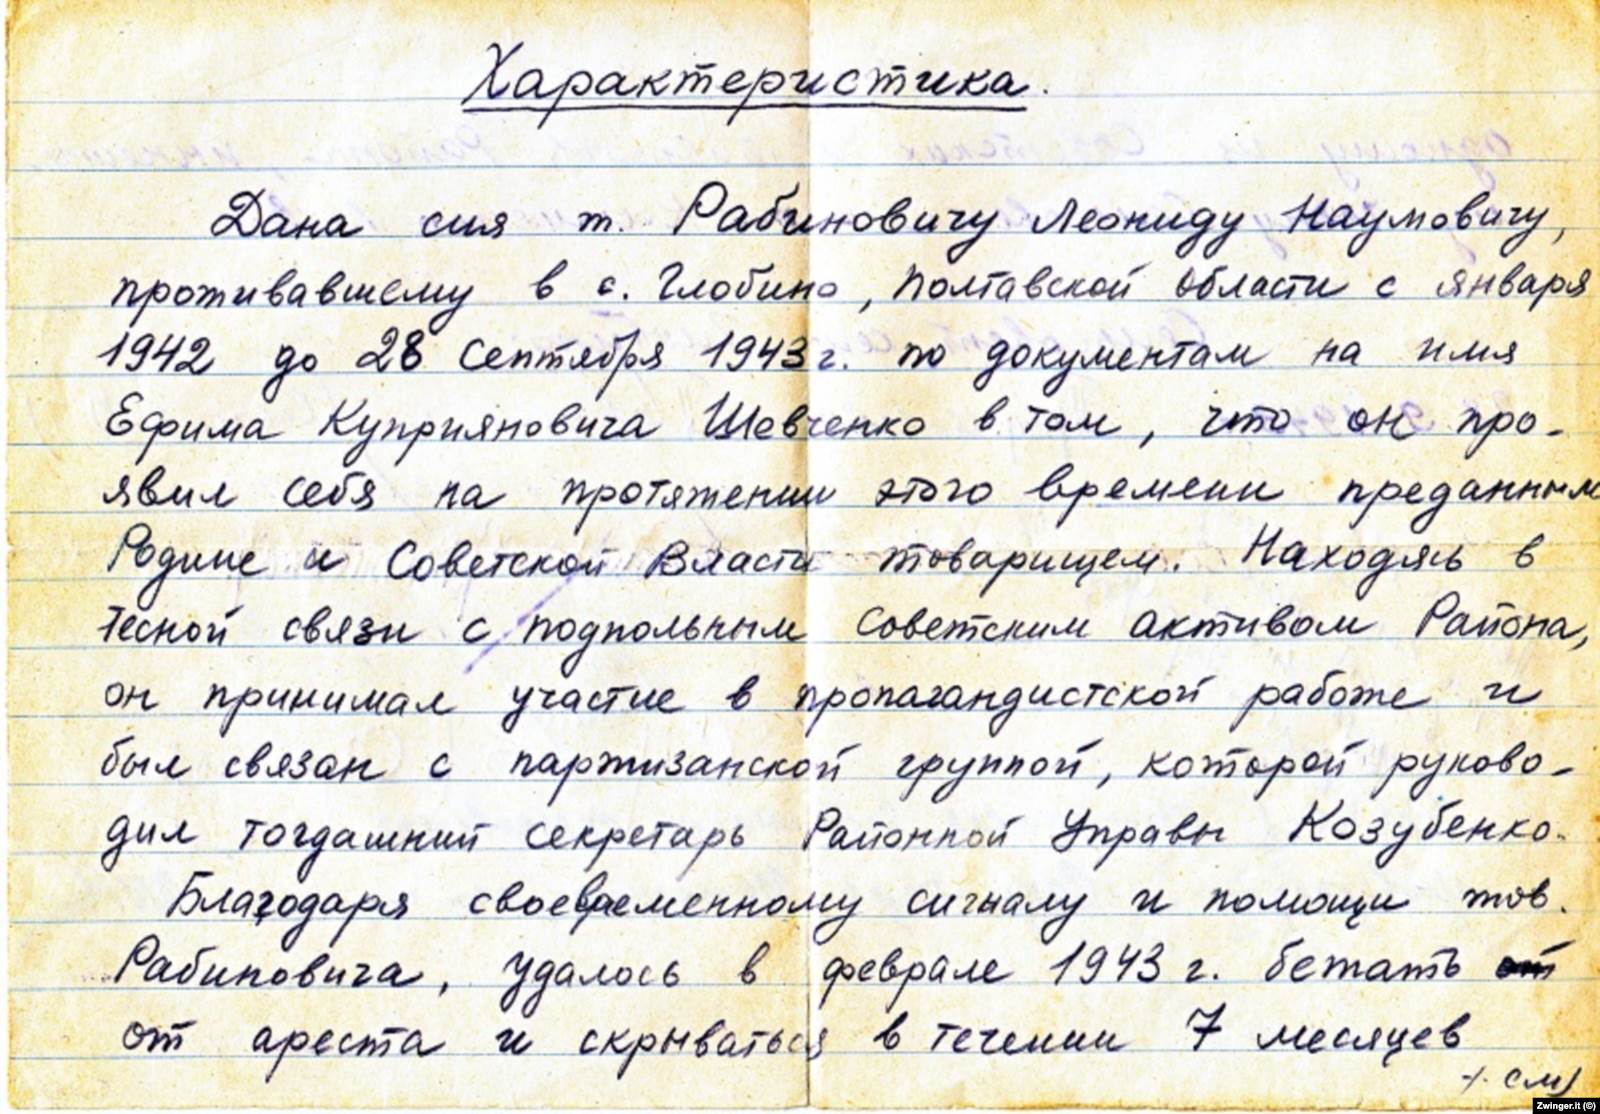 Характеристика.
Дана сия т. Рабиновичу Леониду Наумовичу,
проживавшему в с. Глобино, Полтавской области с января
1942 до 28 Сентября 1943 г. по документам на имя
Ефима Куприяновича Шевченко в том, что он про-
явил себя на протяжении этого времени преданным
Родине и Советской Власти товарищем. Находясь в
тесной связи с подпольным советским активом Района,
он принимал участие в пропагандистской работе и
был связан с партизанской группой, которой руково-
дил тогдашний секретарь Районной Управы Козубенко.
Благодаря своевременному сигналу и помощи тов.
Рабиновича, удалось в феврале 1943 г. бежать от
от ареста и скрываться в течении 7 месяцев
см
Zwinger.it (©)